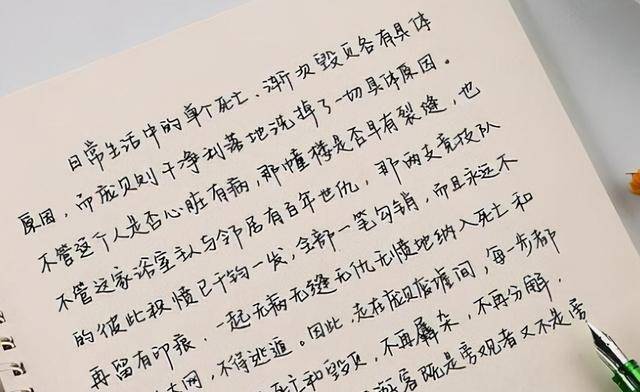 日常生活中的单个死亡、渐次毁灭各有具体
原因，而庞贝则干净利落地洗掉了一切具体原因。
不管这个人是否心脏有病，那幢楼是否早有裂缝，也
不管这家浴室主人与邻居有百年世仇，那两支竞技队
的彼此积愤已千钧一发，全部一笔勾销，而且永远不
再留有印痕，一起无病无缝无仇无愤地纳入死亡和
大网，不得逃遁。因此，走在庞贝废墟间，每一步都
死亡和毁灭，不再羼杂，不再分解，
既是旁观者又不是旁